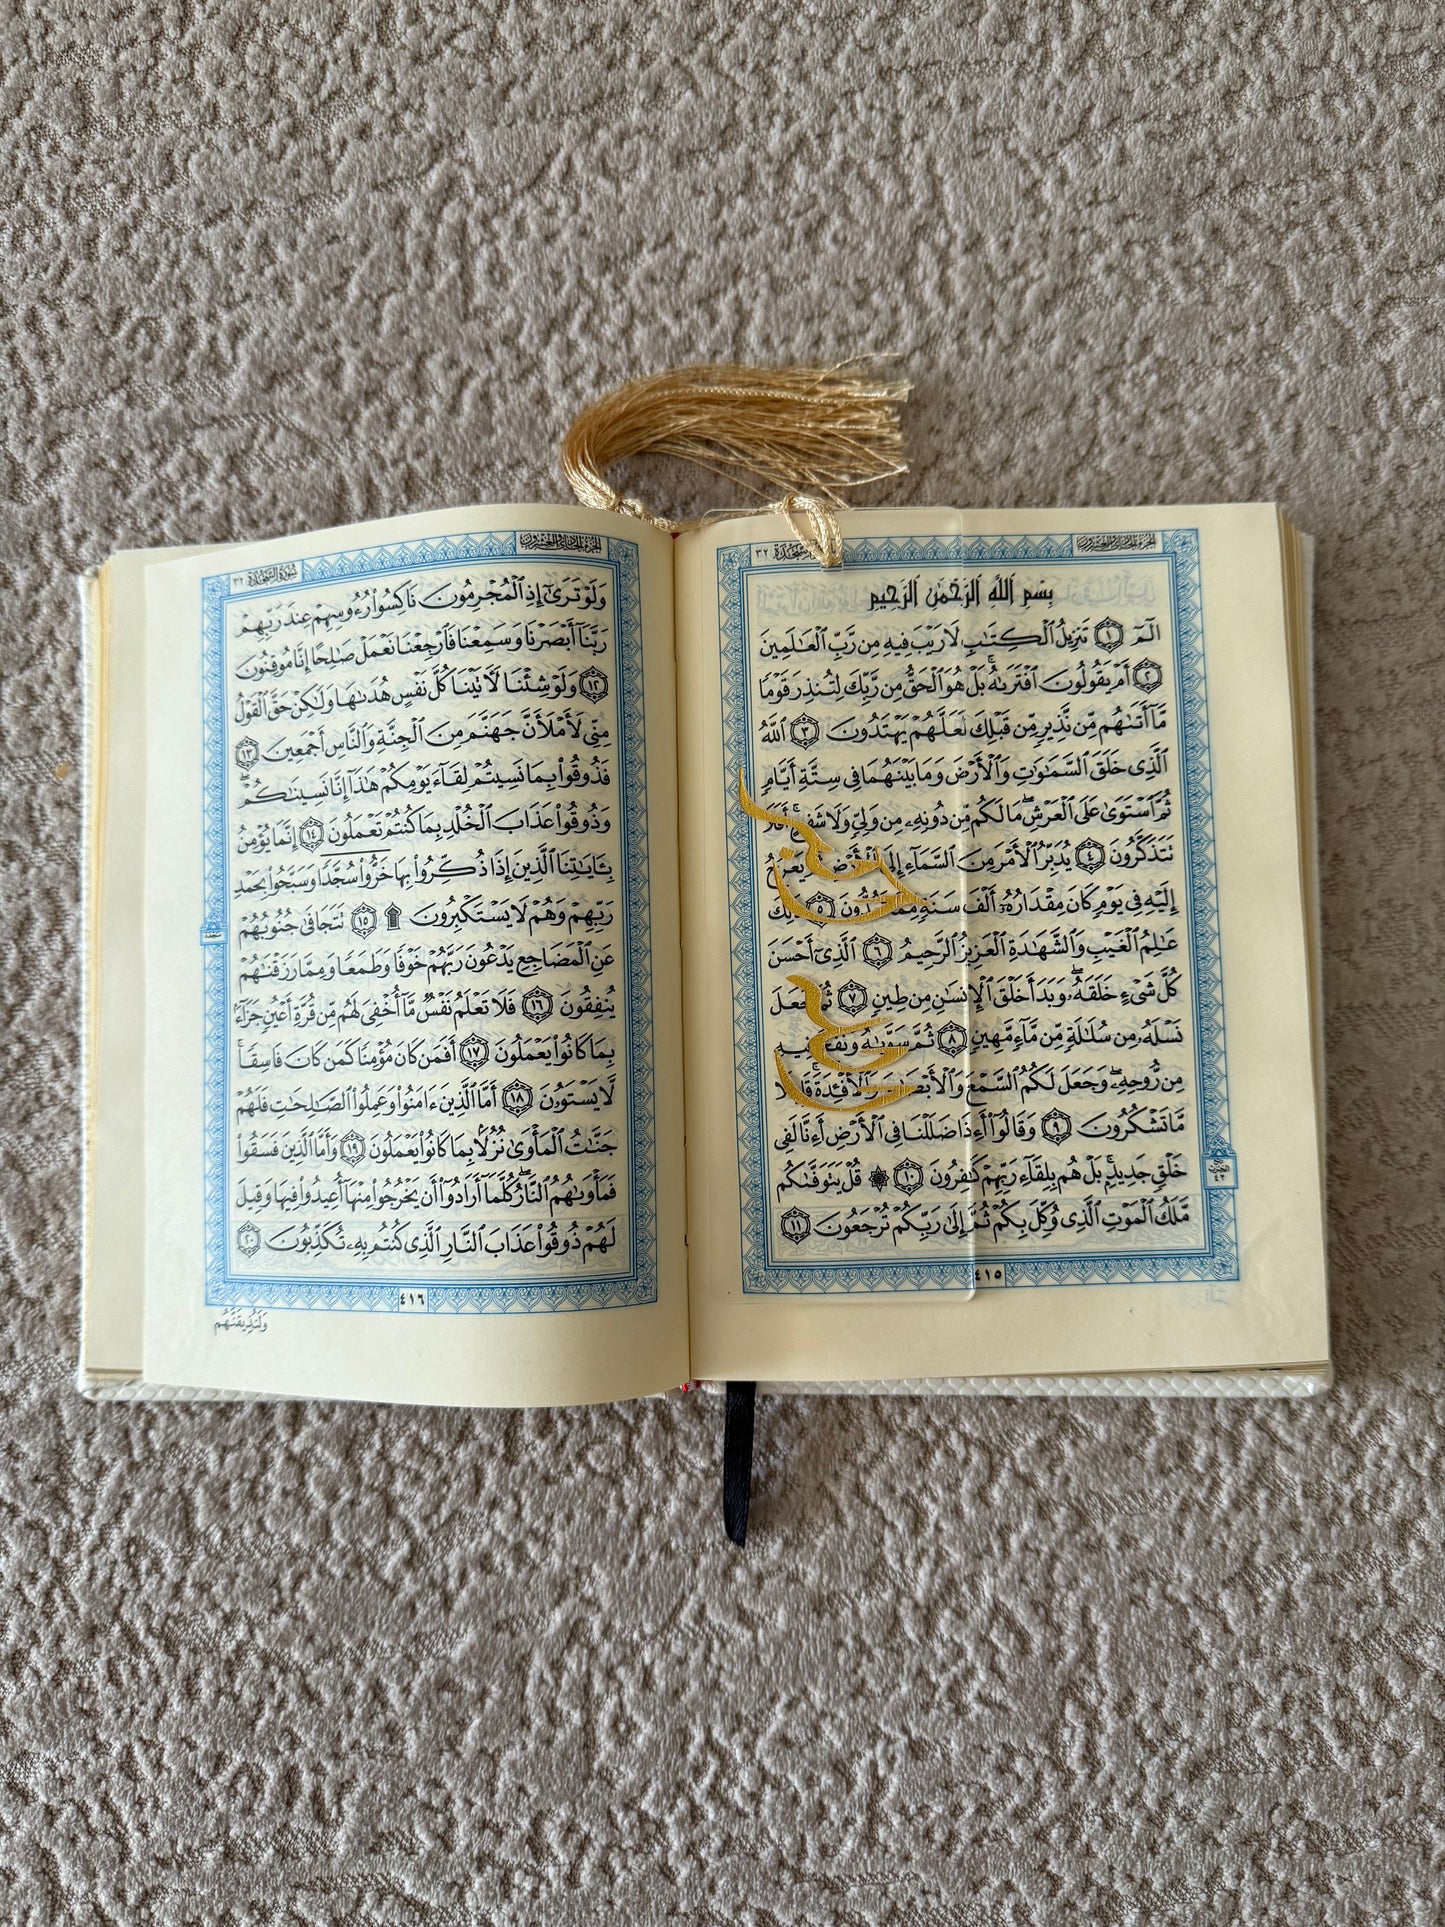 الجزء الحادي والعشرون
السجدة ٣٢
بِسْمِ ٱللَّهِ ٱلرَّحْمَٰنِ ٱلرَّحِيمِ
الٓمٓ ١ تَنزِيلُ ٱلْكِتَٰبِ لَا رَيْبَ فِيهِ مِن رَّبِّ ٱلْعَٰلَمِينَ
٢ أَمْ يَقُولُونَ ٱفْتَرَىٰهُ ۚ بَلْ هُوَ ٱلْحَقُّ مِن رَّبِّكَ لِتُنذِرَ قَوْمًا
مَّآ أَتَىٰهُم مِّن نَّذِيرٍ مِّن قَبْلِكَ لَعَلَّهُمْ يَهْتَدُونَ ٣ ٱللَّهُ
ٱلَّذِى خَلَقَ ٱلسَّمَٰوَٰتِ وَٱلْأَرْضَ وَمَا بَيْنَهُمَا فِى سِتَّةِ أَيَّامٍ
ثُمَّ ٱسْتَوَىٰ عَلَى ٱلْعَرْشِ ۖ مَا لَكُم مِّن دُونِهِۦ مِن وَلِىٍّ وَلَا شَفِيعٍ ۚ أَفَلَا
تَتَذَكَّرُونَ ٤ يُدَبِّرُ ٱلْأَمْرَ مِنَ ٱلسَّمَآءِ إِلَى ٱلْأَرْضِ ثُمَّ يَعْرُجُ
إِلَيْهِ فِى يَوْمٍ كَانَ مِقْدَارُهُۥٓ أَلْفَ سَنَةٍ مِّمَّا تَعُدُّونَ ٥ ذَٰلِكَ
عَٰلِمُ ٱلْغَيْبِ وَٱلشَّهَٰدَةِ ٱلْعَزِيزُ ٱلرَّحِيمُ ٦ ٱلَّذِىٓ أَحْسَنَ
كُلَّ شَىْءٍ خَلَقَهُۥ ۖ وَبَدَأَ خَلْقَ ٱلْإِنسَٰنِ مِن طِينٍ ٧ ثُمَّ جَعَلَ
نَسْلَهُۥ مِن سُلَٰلَةٍ مِّن مَّآءٍ مَّهِينٍ ٨ ثُمَّ سَوَّىٰهُ وَنَفَخَ فِيهِ
مِن رُّوحِهِۦ ۖ وَجَعَلَ لَكُمُ ٱلسَّمْعَ وَٱلْأَبْصَٰرَ وَٱلْأَفْـِٔدَةَ ۚ قَلِيلًا
مَّا تَشْكُرُونَ ٩ وَقَالُوٓا۟ أَءِذَا ضَلَلْنَا فِى ٱلْأَرْضِ أَءِنَّا لَفِى
خَلْقٍ جَدِيدٍۭ ۚ بَلْ هُم بِلِقَآءِ رَبِّهِمْ كَٰفِرُونَ ١٠ ۞ قُلْ يَتَوَفَّىٰكُم
مَّلَكُ ٱلْمَوْتِ ٱلَّذِى وُكِّلَ بِكُمْ ثُمَّ إِلَىٰ رَبِّكُمْ تُرْجَعُونَ ١١
ربع الحزب ٤٢
٤١٥
الجزء الحادي والعشرون
سورة السجدة ٣٢
وَلَوْ تَرَىٰٓ إِذِ ٱلْمُجْرِمُونَ نَاكِسُوا۟ رُءُوسِهِمْ عِندَ رَبِّهِمْ
رَبَّنَآ أَبْصَرْنَا وَسَمِعْنَا فَٱرْجِعْنَا نَعْمَلْ صَٰلِحًا إِنَّا مُوقِنُونَ
١٢ وَلَوْ شِئْنَا لَـَٔاتَيْنَا كُلَّ نَفْسٍ هُدَىٰهَا وَلَٰكِنْ حَقَّ ٱلْقَوْلُ
مِنِّى لَأَمْلَأَنَّ جَهَنَّمَ مِنَ ٱلْجِنَّةِ وَٱلنَّاسِ أَجْمَعِينَ ١٣
فَذُوقُوا۟ بِمَا نَسِيتُمْ لِقَآءَ يَوْمِكُمْ هَٰذَآ إِنَّا نَسِينَٰكُمْ ۖ
وَذُوقُوا۟ عَذَابَ ٱلْخُلْدِ بِمَا كُنتُمْ تَعْمَلُونَ ١٤ إِنَّمَا يُؤْمِنُ
بِـَٔايَٰتِنَا ٱلَّذِينَ إِذَا ذُكِّرُوا۟ بِهَا خَرُّوا۟ سُجَّدًا وَسَبَّحُوا۟ بِحَمْدِ
رَبِّهِمْ وَهُمْ لَا يَسْتَكْبِرُونَ ۩ ١٥ تَتَجَافَىٰ جُنُوبُهُمْ
عَنِ ٱلْمَضَاجِعِ يَدْعُونَ رَبَّهُمْ خَوْفًا وَطَمَعًا وَمِمَّا رَزَقْنَٰهُمْ
يُنفِقُونَ ١٦ فَلَا تَعْلَمُ نَفْسٌ مَّآ أُخْفِىَ لَهُم مِّن قُرَّةِ أَعْيُنٍ جَزَآءًۢ
بِمَا كَانُوا۟ يَعْمَلُونَ ١٧ أَفَمَن كَانَ مُؤْمِنًا كَمَن كَانَ فَاسِقًا ۚ
لَّا يَسْتَوُۥنَ ١٨ أَمَّا ٱلَّذِينَ ءَامَنُوا۟ وَعَمِلُوا۟ ٱلصَّٰلِحَٰتِ فَلَهُمْ
جَنَّٰتُ ٱلْمَأْوَىٰ نُزُلًۢا بِمَا كَانُوا۟ يَعْمَلُونَ ١٩ وَأَمَّا ٱلَّذِينَ فَسَقُوا۟
فَمَأْوَىٰهُمُ ٱلنَّارُ ۖ كُلَّمَآ أَرَادُوٓا۟ أَن يَخْرُجُوا۟ مِنْهَآ أُعِيدُوا۟ فِيهَا وَقِيلَ
لَهُمْ ذُوقُوا۟ عَذَابَ ٱلنَّارِ ٱلَّذِى كُنتُم بِهِۦ تُكَذِّبُونَ ٢٠
سجدة
٤١٦
وَلَنُذِيقَنَّهُم